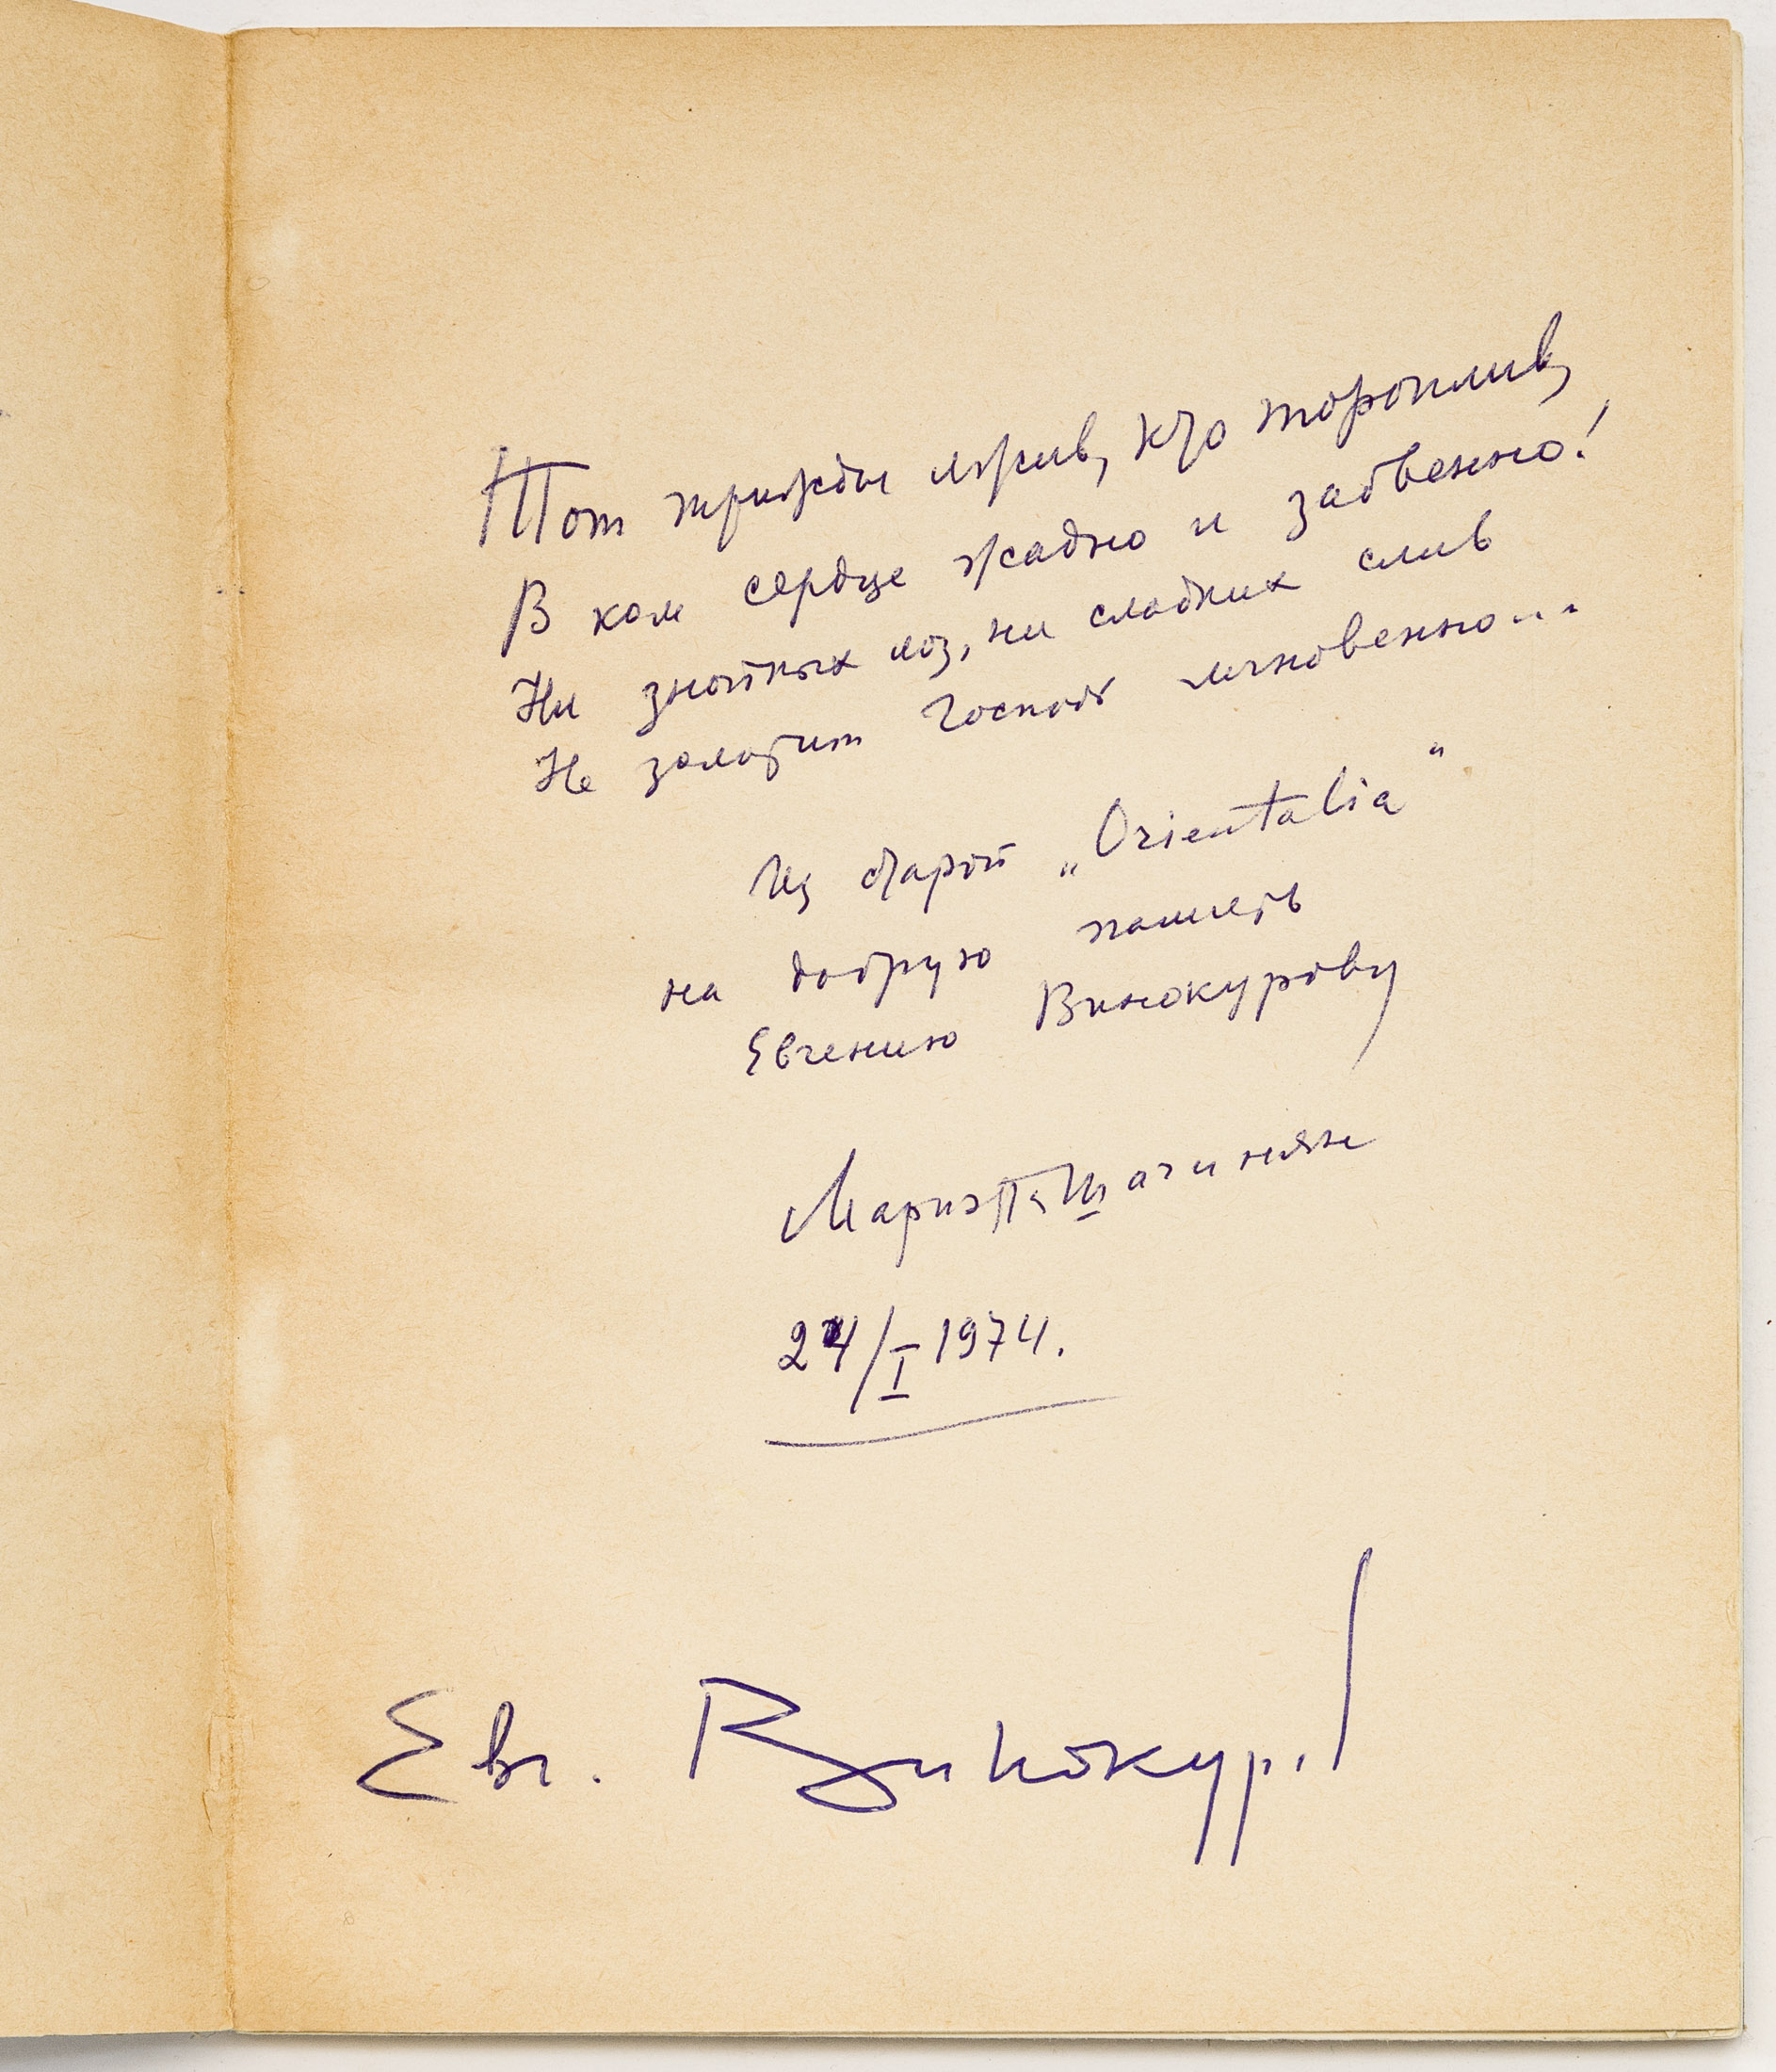 Тот трижды лжив, кто тороплив,
В ком сердце жадно и забвенно!
Ни знойных лоз, ни сладких слив
Не золотит Господь мгновенно...
Из старой „Orientalia“
на добрую память
Евгению Винокурову
Мариэтта Шагинян
24/I 1974.
Евг. Винокуров